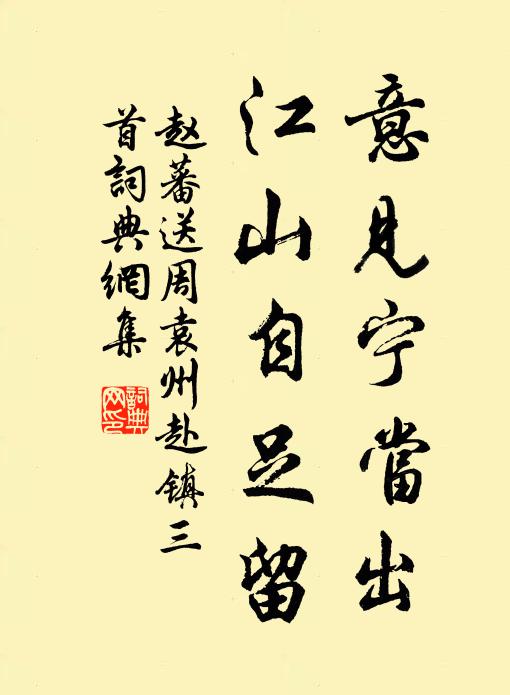 意见宁當出
江山自足留
赵蕃送周袁州赴镇三
首詞典網集
詞典
网印